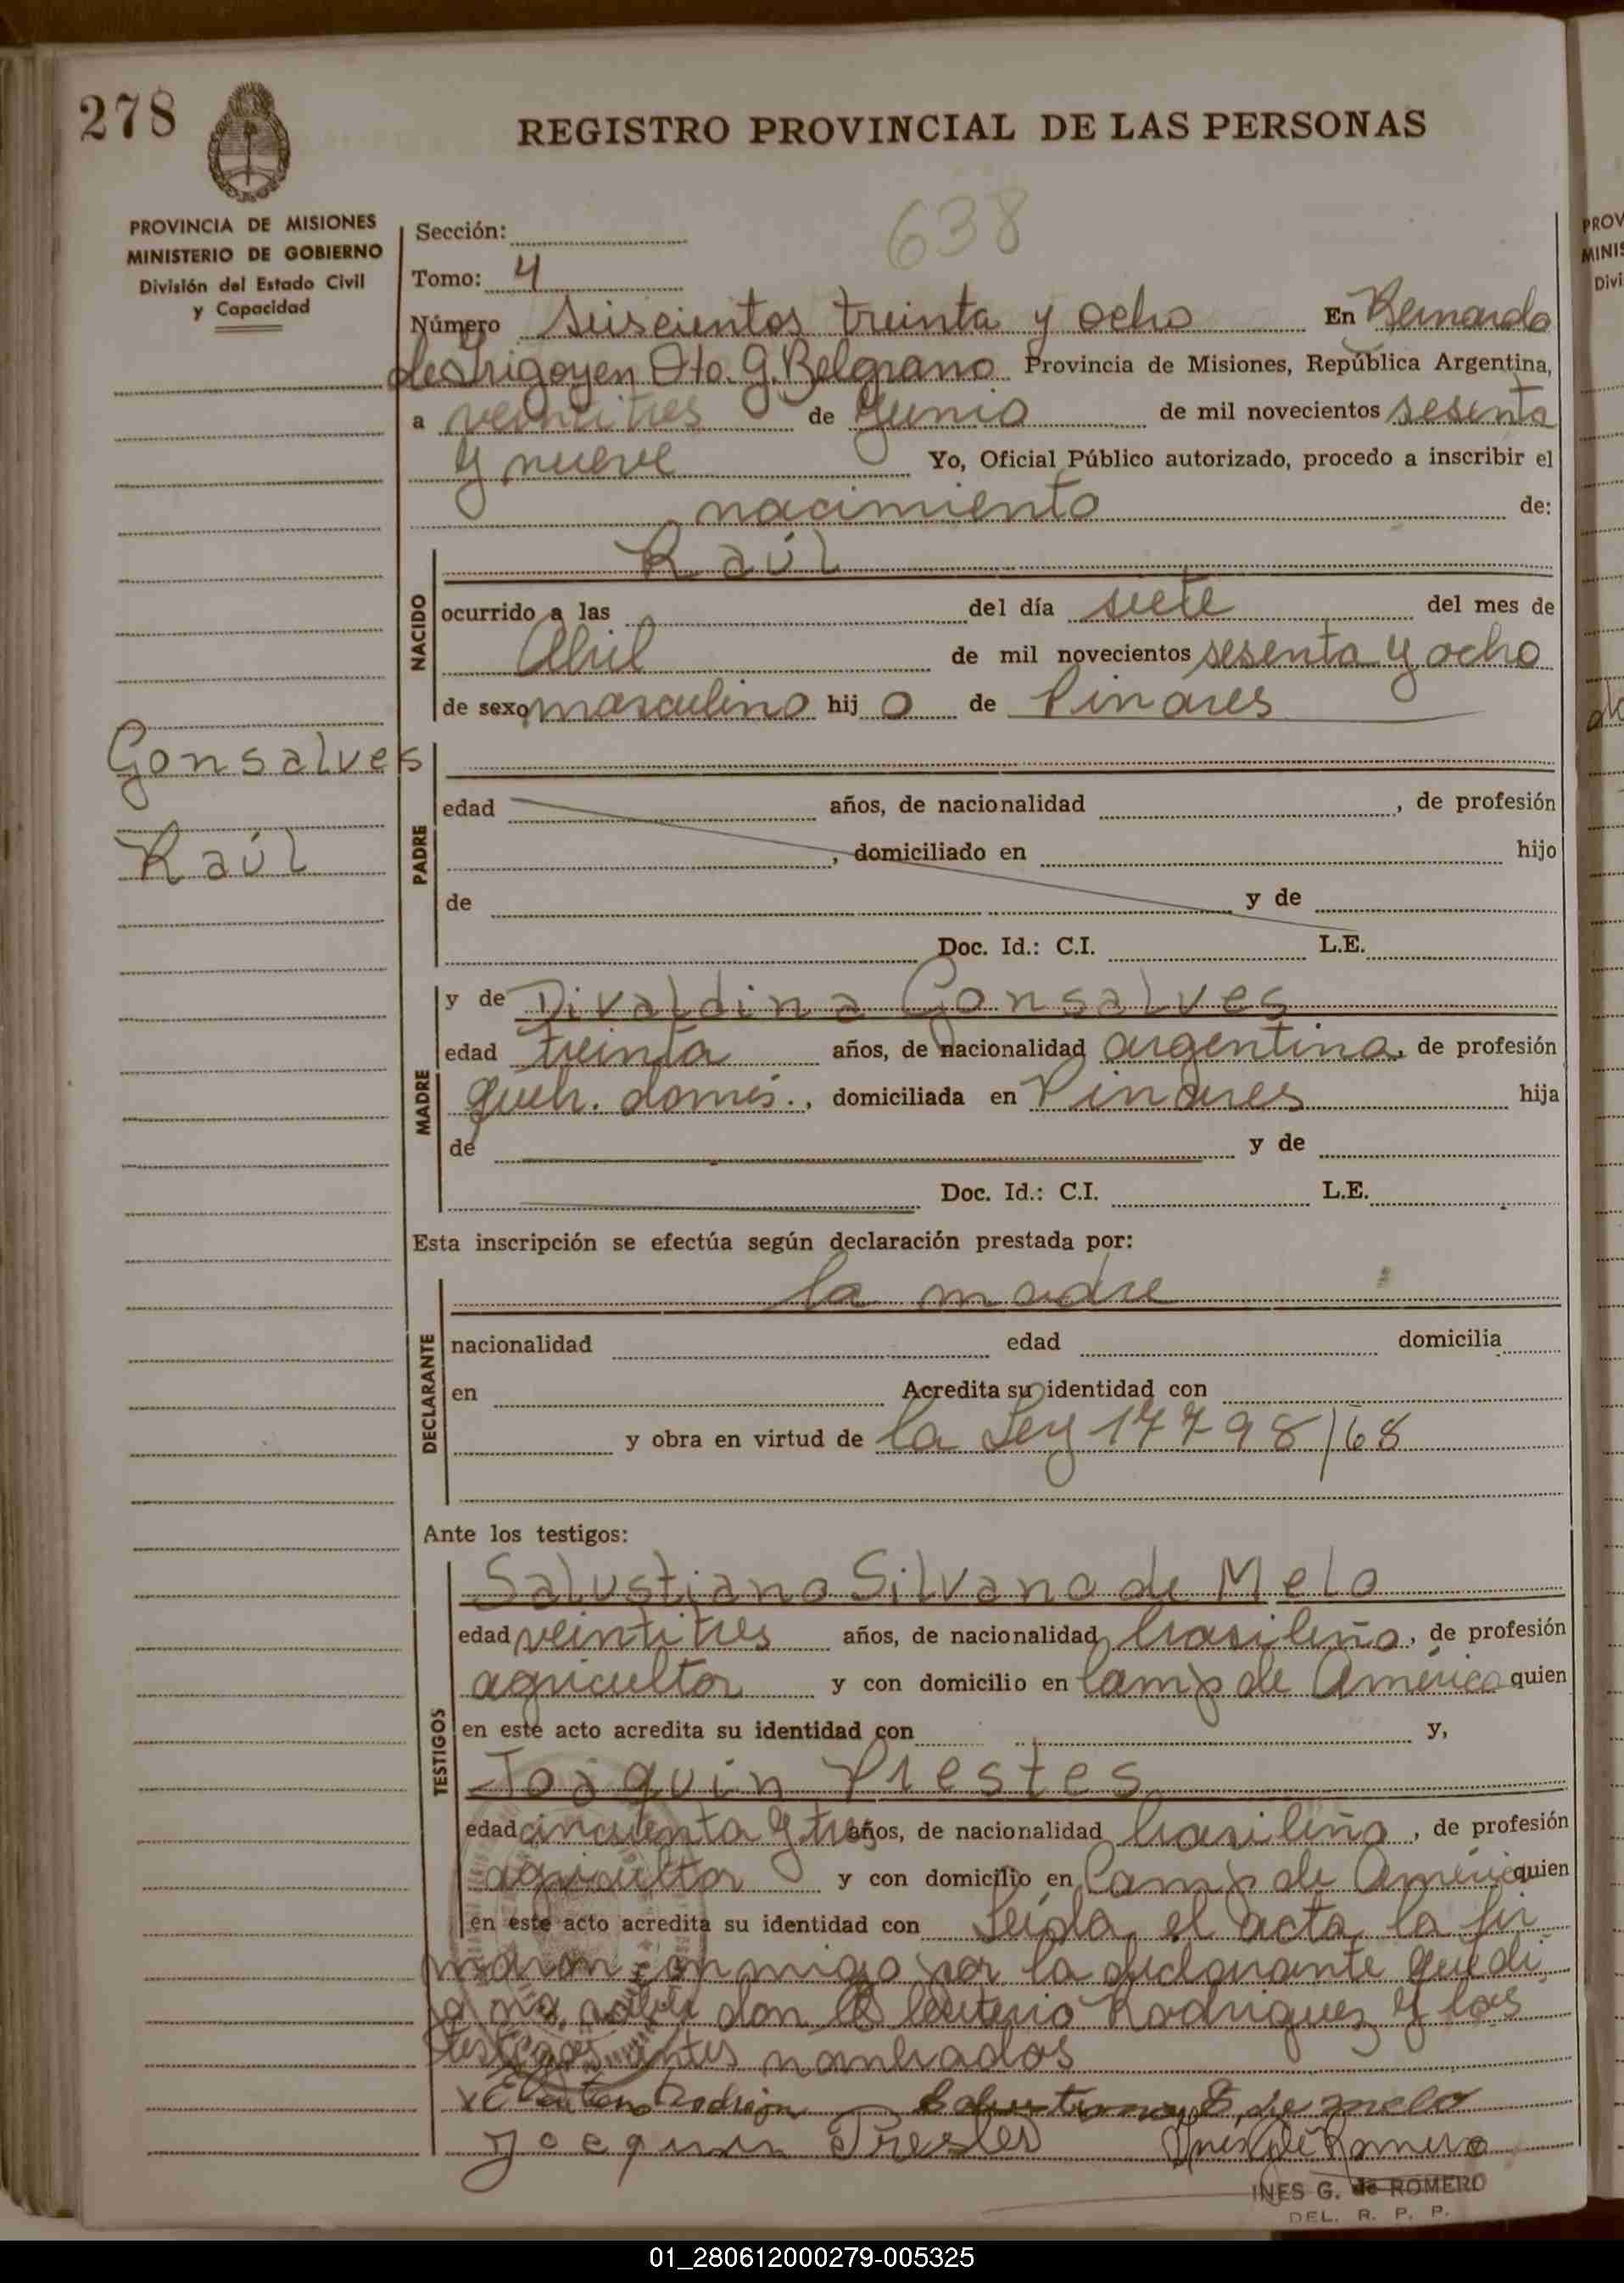 278
REGISTRO PROVINCIAL DE LAS PERSONAS
PROVINCIA DE MISIONES
MINISTERIO DE GOBIERNO
División del Estado Civil
y Capacidad
638
Sección:
Tomo: 4
Número seiscientos treinta y ocho En Bernardo
de Irigoyen Dto. G. Belgrano Provincia de Misiones, República Argentina,
a veintitres de Junio de mil novecientos sesenta
y nueve Yo, Oficial Público autorizado, procedo a inscribir el
nacimiento de:
NACIDO
Raúl
ocurrido a las del día siete del mes de
Abril de mil novecientos sesenta y ocho
de sexo masculino hij o de Pinares
Gonsalves
Raúl
PADRE
edad años, de nacionalidad , de profesión
, domiciliado en hijo
de y de
Doc. Id.: C.I. L.E.
MADRE
y de Divaldina Gonsalves
edad treinta años, de nacionalidad argentina, de profesión
queh. domés., domiciliada en Pinares hija
de y de
Doc. Id.: C.I. L.E.
Esta inscripción se efectúa según declaración prestada por:
DECLARANTE
la madre
nacionalidad edad domicilia
en Acredita su identidad con
y obra en virtud de la Ley 17798/68
Ante los testigos:
TESTIGOS
Salustiano Silvano de Melo
edad veintitres años, de nacionalidad brasileño, de profesión
agricultor y con domicilio en Camp de América quien
en este acto acredita su identidad con y,
Joaquin Prestes
edad cincuenta y tres años, de nacionalidad brasileño, de profesión
agricultor y con domicilio en Camp de América quien
en este acto acredita su identidad con Leida el acta la fir
maron conmigo por la declarante que di
jo no saber don Eleuterio Rodriguez y los
testigos antes nombrados
Joaquin Prestes Ines de Romero
INES G. de ROMERO
DEL. R. P. P.
PROV
MINIS
Divi
01_280612000279-005325